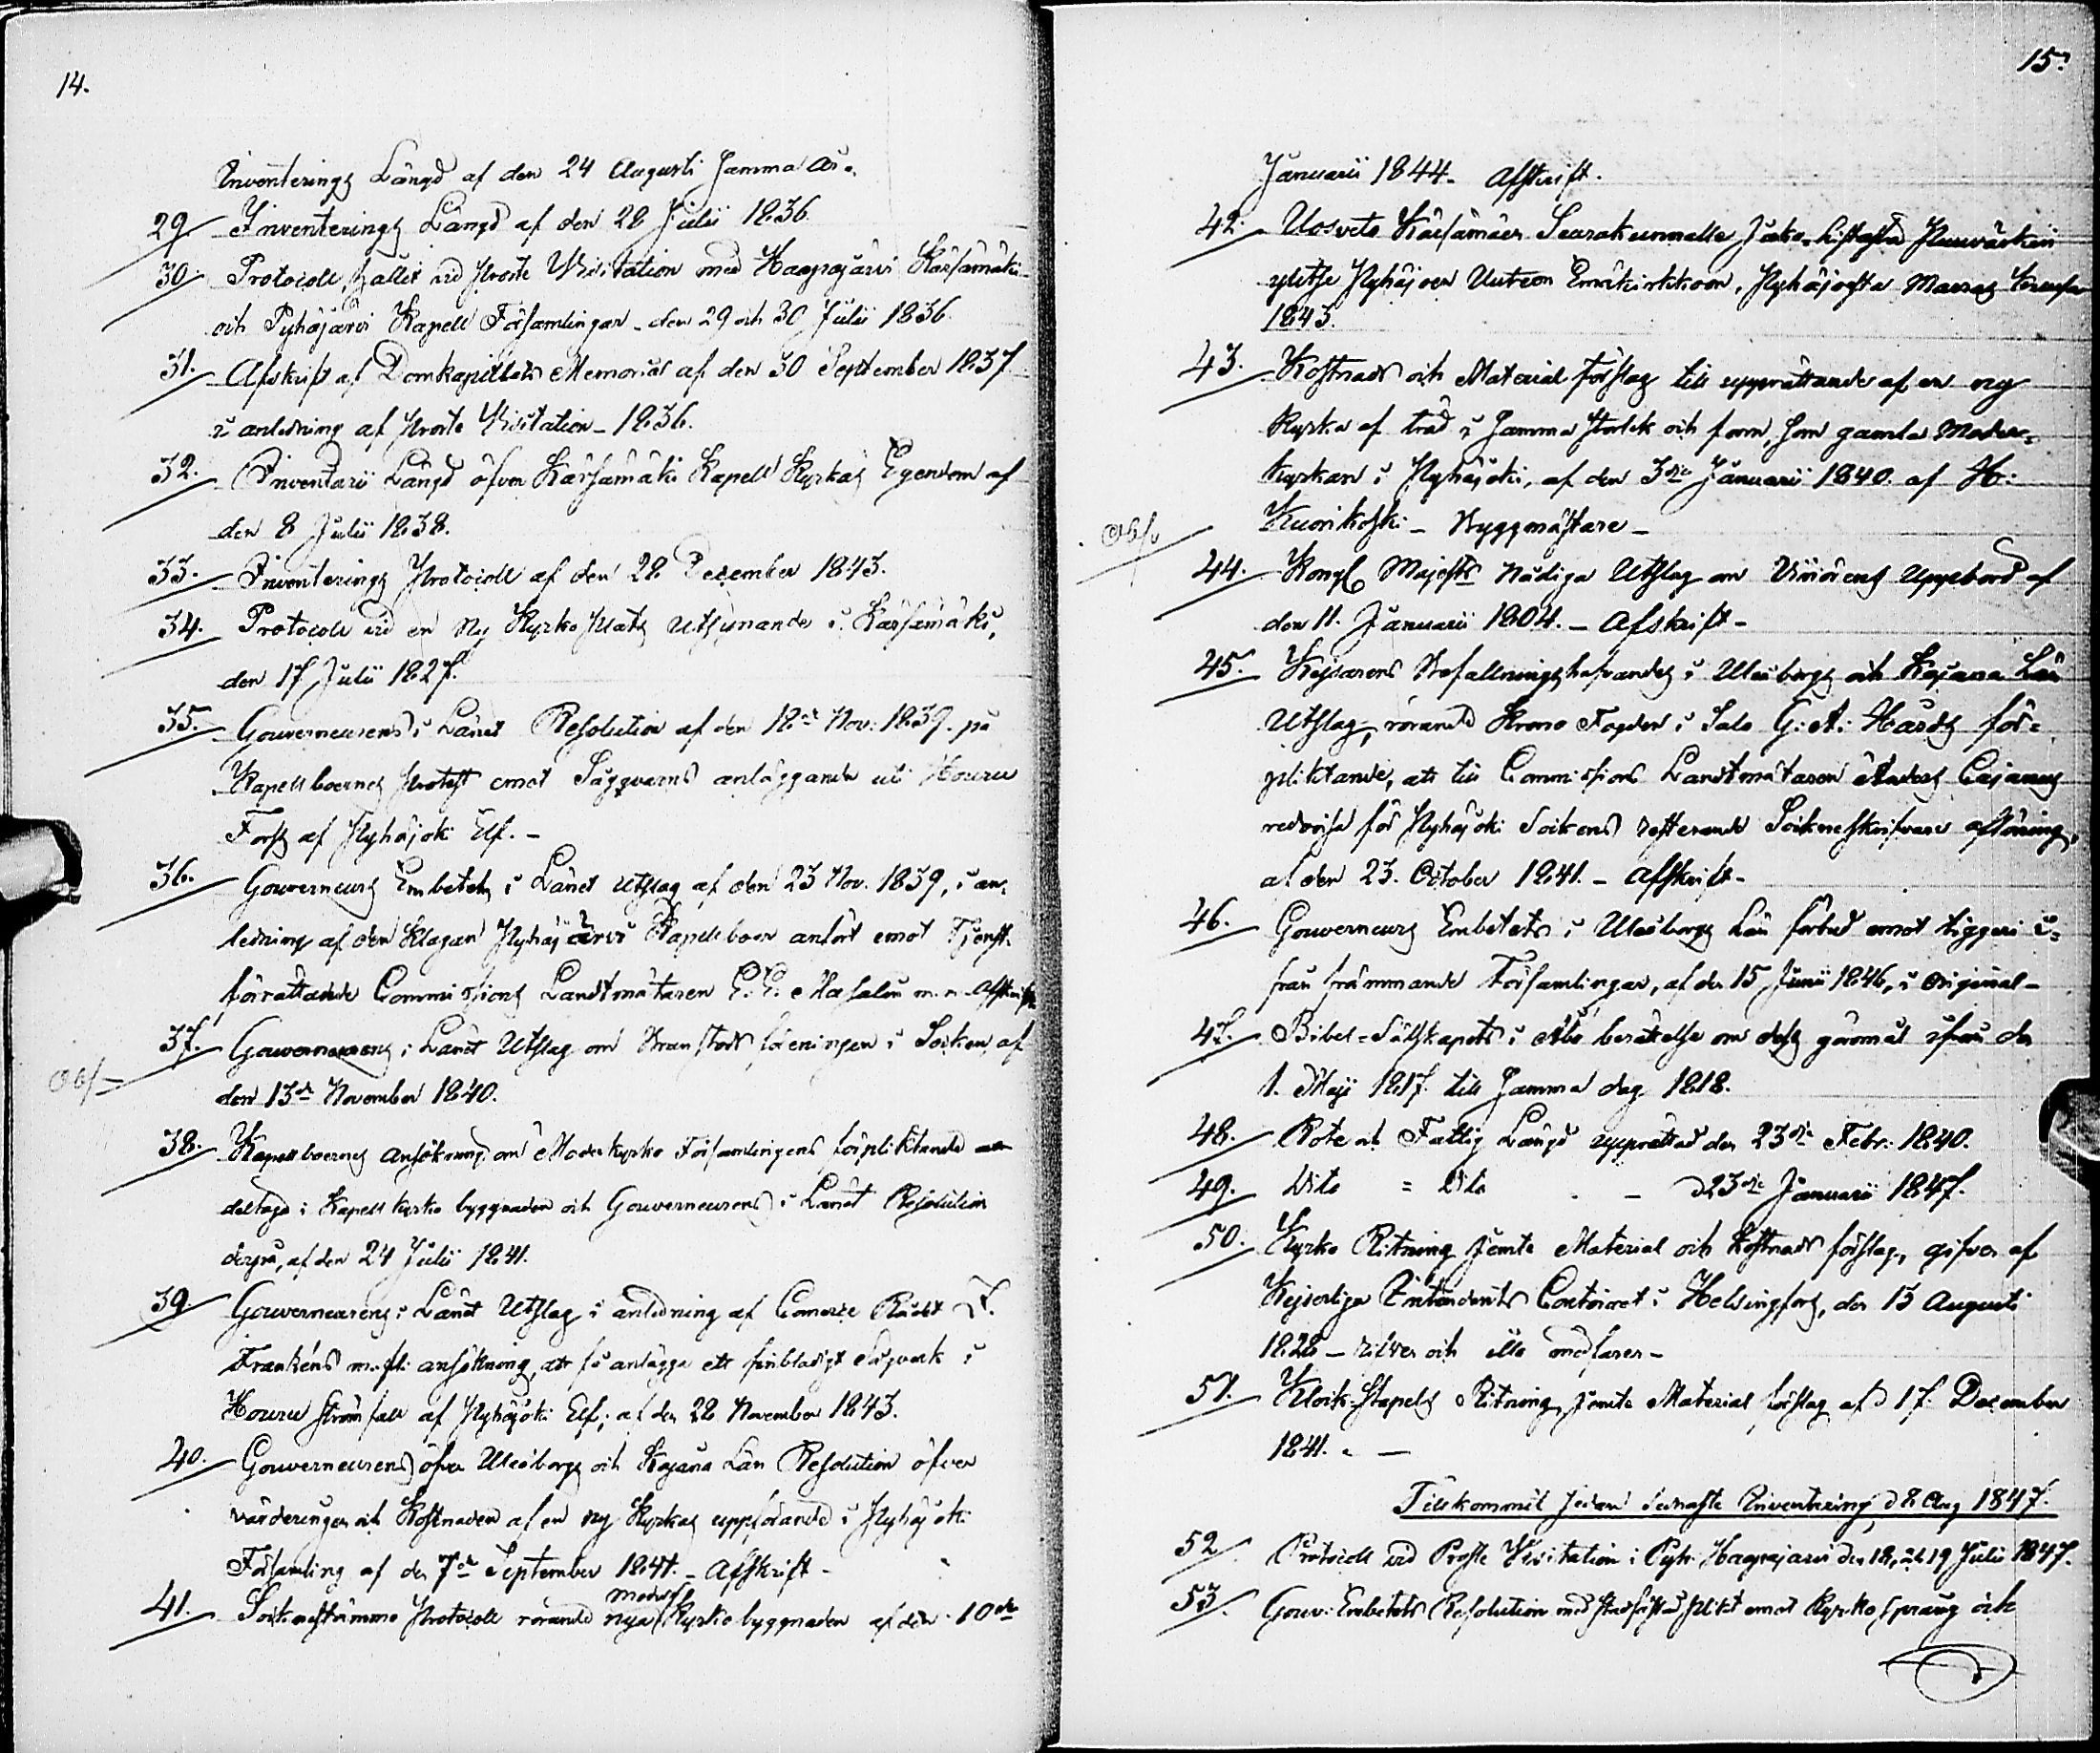 14.
Inventerings Längd af den 24 Augusti samma år.
29 Inventerings Längd af den 28 Julii 1836.
30 Protocoll, hållit vid Proste Visitation med Haapajärvi Kärsämäki
och Pyhäjärvi Kapell Församlingar den 29 och 30 Julii 1836.
31. Afskrift af Domkapitlets Memorial af den 30 September 1837.
i anledning af Proste Visitation 1836.
32. Inventarii Längd öfver Kärsämäki Kapell Kyrkas Egendom af
den 8 Julii 1838.
33. Inventerings Protocoll af den 28 December 1843.
34. Protocoll vid en Ny Kyrko Plats utsynande i Kärsämäki,
den 17 Julii 1827.
35. Gouverneurens i Länet Resolution af den 18de Nov: 1839. på
Kapellboernes Protest emot Sågqvarns anläggande uti Houru
Forss af Pyhäjoki Elf. –
36. Gouverneurs Embetets i Länet utslag af den 23 Nov. 1839, i an-
ledning af den klagan Pyhäjärvi Kapellboer anfört emot Tjenst-
förrättande Commissions Landtmätaren E. E. Masalin m. m. Afskrift
37. Gouverneurens i Länet Utslag om Brandstods föreningen i Socken, af
Obs –
den 13de November 1840.
38. Kapellboernes ansökning om Moderkyrko Församlingens förpliktande att
deltaga i Kapell kyrko byggnaden och Gouverneurens i Länet Resolution
derpå, af den 24 Julii 1841.
39. Gouverneurens i Länet Utslag i anledning af Comerce Rådet F.
Franzéns m. fl. ansökning, att få anlägga ett finbladigt Sågverk i
Houru strömfall af Pyhäjoki Elf; af den 28 November 1843.
40. Gouverneurens öfver Uleåborgs och Kajana Län Resolution öfver
värderingen och Kostnaden af en ny Kyrkas uppförande i Pyhäjoki
Församling af den 7de September 1841. – Afskrift –
41. Sockenstämmo Protocoll rörande nya Kyrko byggnaden af den 10de
15.
Januarii 1844. Afskrift.
42. Uosveto Kärsämäen Seurakunnalle
ylitse Pyhäjoen Uuteen Emäkirkkoon, Pyhäjoesta
1843.
43. Kostnads och Material förslag till upprättande af en ny
Kyrka af träd i samma storlek och form, som gamla Moder-
kyrkan i Pyhäjoki, af den 3die Januarii 1840. af H:
Obs.
Kuorikoski – Byggmästare –
44. Kongl. Majests Nådiga Utslag om Uppebörd af
den 11. Januarii 1804. – Afskrift –
45. Kejsarens Befallningshafvandes i Uleåborgs och Kajana Län
Utslag, rörande Krono Fogden i Salo G: A: Hårdhs för-
pliktande, att till Commissions Landtmätaren Anders Cajanus
redovisa för Pyhäjoki Sockens resterande Sockneskrifvare aflöning,
af den 23. October 1841. – Afskrift –
46. Gouverneurs Embetets i Uleåborgs Län förbud emot tiggeri i-
från främmande Församlingar, af den 15 Junii 1846, i Original –
47. Bibel-Sällskapets i Åbo berättelse om dess göromål ifrån den
1. Maji 1817 till samma dag 1818.
48. Rote och Fattig Längd upprättad den 23die Febr: 1840.
49. Dito = Dito – – d 23die Januarii 1847.
50. Kyrko Ritning jemte Material och kostnads förslag, gifven af
Kejserliga Intendents Contoiret i Helsingfors, den 13 Augusti
1828 – rifven och illa medfaren –
51. Klock-Stapels Ritning jemte Material förslag af d 17 December
1841. –
Tillkommit sedan sednaste Inventering d 8 Aug 1847.
52. Protocoll vid Proste Visitation i Pyh: Haapajärvi den 18, och 19 Julii 1847.
53. Gouv: Embetets Resolution med emot Kyrko och